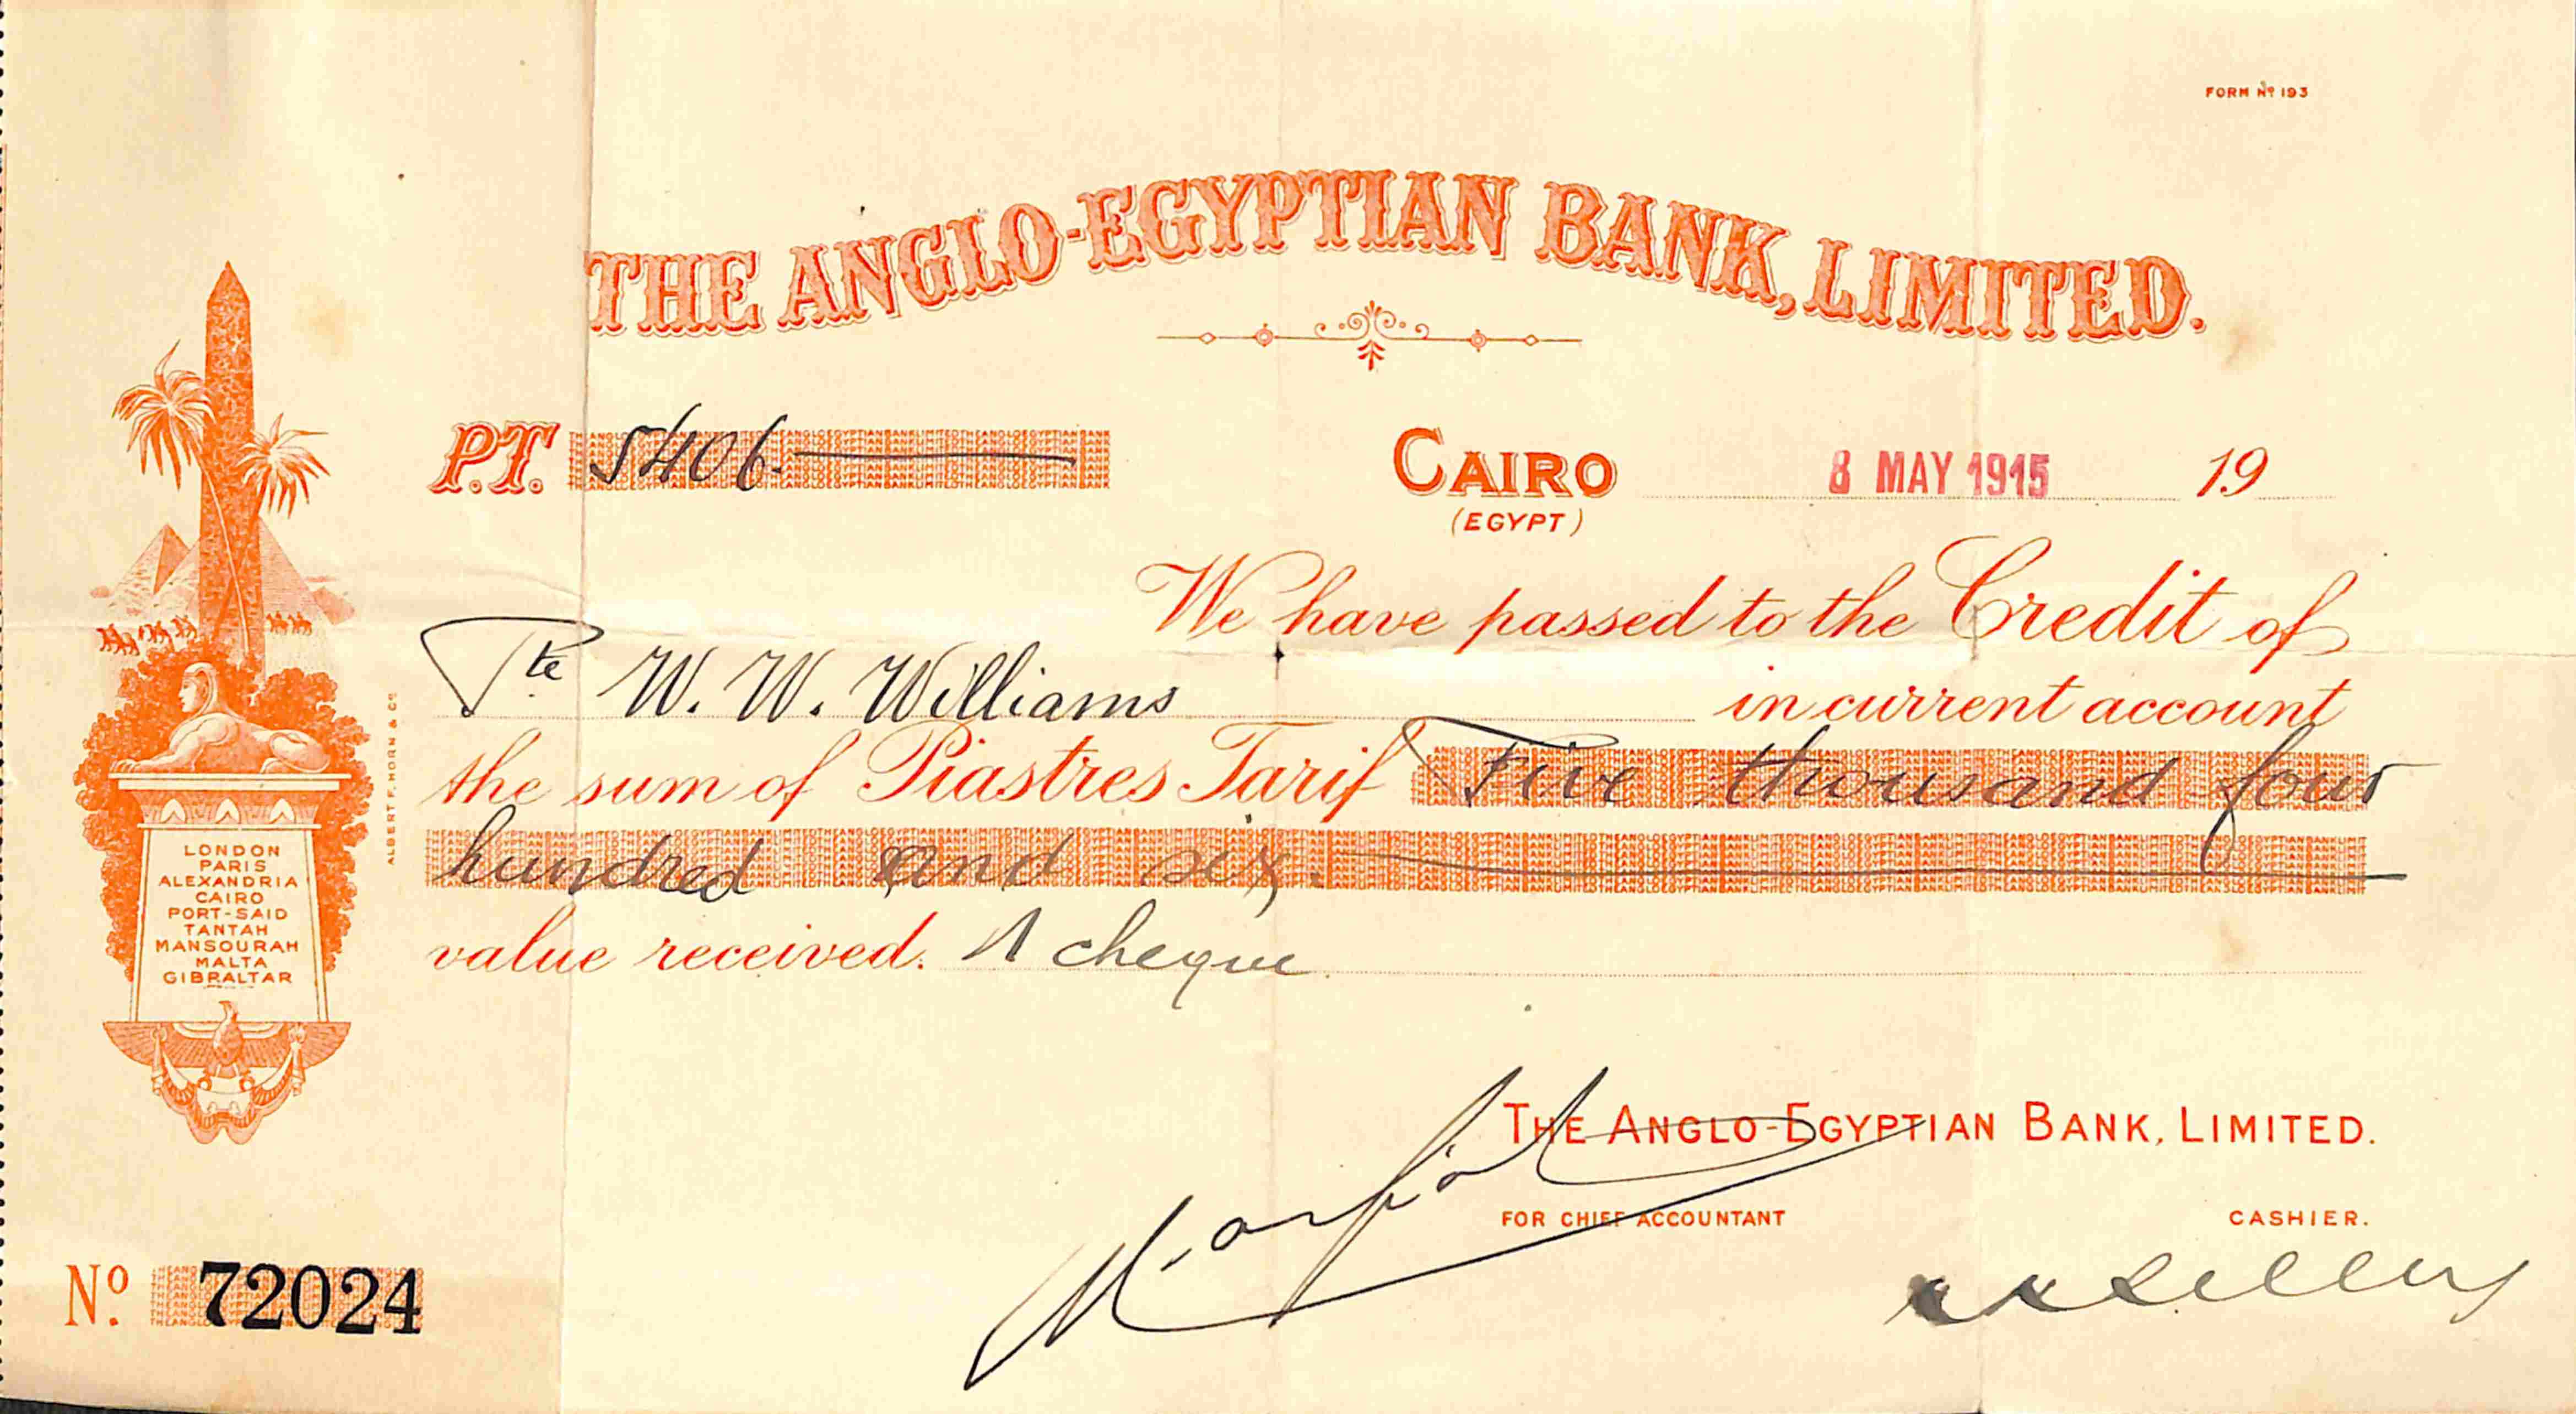 FORM Nº 193
THE ANGLO-EGYPTIAN BANK, LIMITED.
P.T. 5406.
CAIRO 8 MAY 1915 19
(EGYPT)
We have passed to the Credit of
Pte W. W. Williams in current account
the sum of Piastres Tarif Five thousand four
hundred and six.
value received. 1 cheque
ALBERT F. HORN & Cº
LONDON
PARIS
ALEXANDRIA
CAIRO
PORT-SAID
TANTAH
MANSOURAH
MALTA
GIBRALTAR
THE ANGLO-EGYPTIAN BANK, LIMITED.
FOR CHIEF ACCOUNTANT CASHIER.
Nº 72024